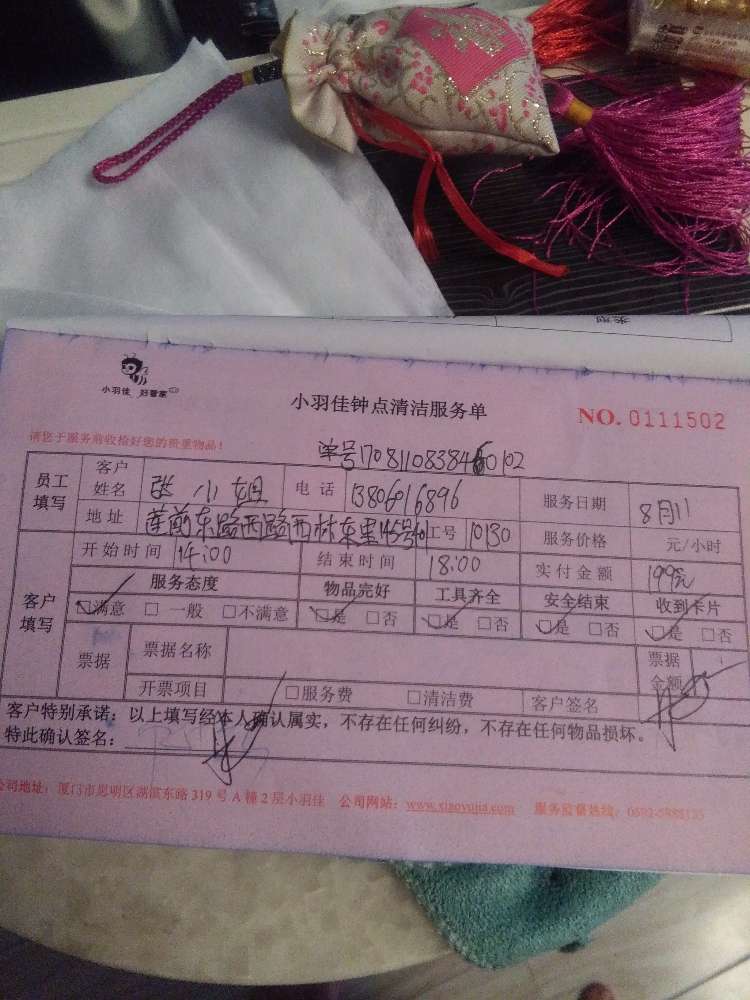 小羽佳 好管家
小羽佳钟点清洁服务单
NO. 0111502
请您于服务前收捡好您的贵重物品!
单号
员工填写 客户姓名 张小姐 电话 13806016896 服务日期 8月11
地址 莲前东路西路西林东里 工号 10130 服务价格 元/小时
开始时间 14:00 结束时间 18:00 实付金额 199元
客户填写 服务态度 物品完好 工具齐全 安全结束 收到卡片
☑满意 □一般 □不满意 ☑是 □否 ☑是 □否 ☑是 □否 ☑是 □否
票据 票据名称 票据金额
开票项目 □服务费 □清洁费 客户签名
客户特别承诺:以上填写经本人确认属实,不存在任何纠纷,不存在任何物品损坏。
特此确认签名:
公司地址:厦门市思明区湖滨东路319号A幢2层小羽佳 公司网站:www.xiaoyujia.com 服务监督热线: